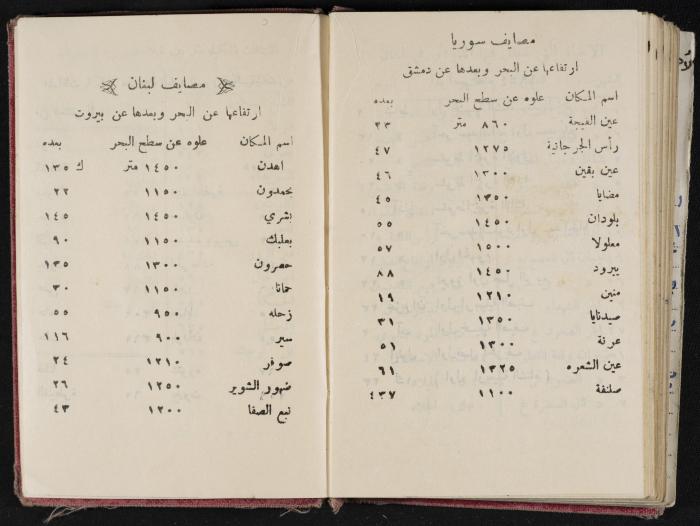 مصايف سوريا
ارتفاعها عن البحر وبعدها عن دمشق
اسم المكان علوه عن سطح البحر بعده
عين الفيجة ٨٦٠ متر ٣٣
رأس الجرجانية ١٢٧٥ ٤٧
عين بقين ١٣٠٠ ٤٦
مضايا ١٣٥٠ ٤٥
بلودان ١٤٥٠ ٥٥
معلولا ١٥٠٠ ٥٧
يبرود ١٤٥٠ ٨٨
منين ١٢١٠ ١٩
صيدنايا ١٣٥٠ ٣١
عرنة ١٣٠٠ ٥١
عين الشعره ١٣٢٥ ٦١
صلنفة ١١٠٠ ٤٣٧
مصايف لبنان
ارتفاعها عن البحر وبعدها عن بيروت
اسم المكان علوه عن سطح البحر بعده
اهدن ١٤٥٠ متر ك ١٣٥
بحمدون ١١٥٠ ٢٢
بشري ١٤٥٠ ١٤٥
بعلبك ١١٥٠ ٩٠
حصرون ١٣٠٠ ١٣٥
حمانا ١١٥٠ ٣٠
زحله ٩٥٠ ٥٥
سير ٩٠٠ ١١٦
صوفر ١٢١٠ ٢٤
ضهور الشوير ١٢٥٠ ٢٦
نبع الصفا ١٢٠٠ ٤٣